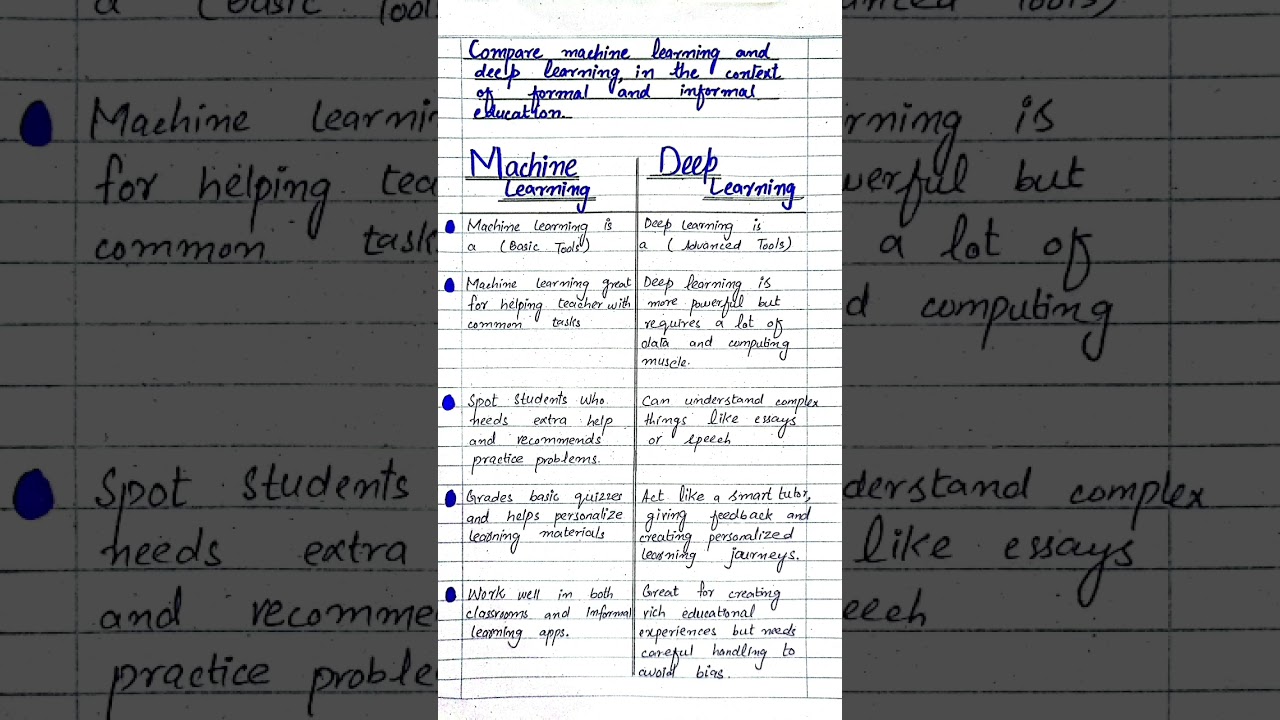 Compare machine learning and
deep learning, in the context
of formal and informal
education.
Machine
Learning
Machine Learning is
a (Basic Tools)
Machine learning great
for helping teacher with
common tasks
Spot students who
needs extra help
and recommends
practice problems.
Grades basic quizzes
and helps personalize
learning materials
Work well in both
classrooms and Informal
learning apps.
Deep
Learning
Deep Learning is
a (Advanced Tools)
Deep learning is
more powerful but
requires a lot of
data and computing
muscle.
Can understand complex
things like essays
or speech
Act like a smart tutor,
giving feedback and
creating personalized
learning journeys.
Great for creating
rich educational
experiences but needs
careful handling to
avoid bias.